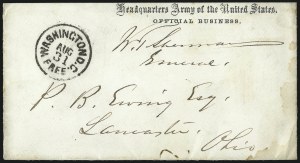 Headquarters Army of the United States.
OFFICIAL BUSINESS.
WASHINGTON. D.
AUG
31
FREE
W. T. Sherman
General
P. B. Ewing Esq.
Lancaster,
Ohio.